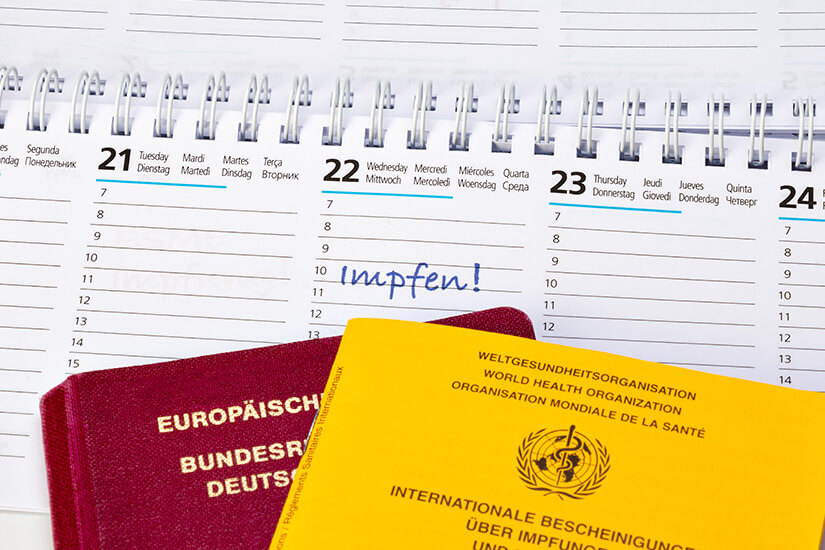 Segunda
Понедельник
21 Tuesday Mardi Martes Terça
Dienstag Martedì Dinsdag Вторник
22 Wednesday Mercredi Miércoles Quarta
Mittwoch Mercoledì Woensdag Среда
23 Thursday Jeudi Jueves Quinta
Donnerstag Giovedì Donderdag Четверг
24
7
8
9
10
11
12
13
14
15
7
8
9
10 Impfen!
11
12
7
8
9
10
11
12
7
8
9
10
11
12
13
14
EUROPÄISCH
BUNDESR
DEUTS
WELTGESUNDHEITSORGANISATION
WORLD HEALTH ORGANIZATION
ORGANISATION MONDIALE DE LA SANTÉ
INTERNATIONALE BESCHEINIGUNGE
ÜBER IMPFUNGE
UND
/ Règlements Sanitaires Internationaux